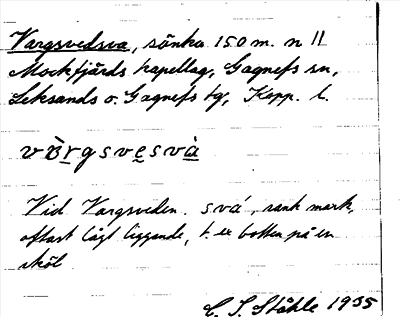 Vargsvedsva, sänka 150 m. n ll
Mockfjärds kapellag, Gagnefs sn,
Leksands o. Gagnefs tg, Kopp. l.
vàrgsvesvà
Vid Vargsveden. svá, sank mark,
oftast lågt liggande, t. ex botten på en
skål
C. I. Ståhle 1935